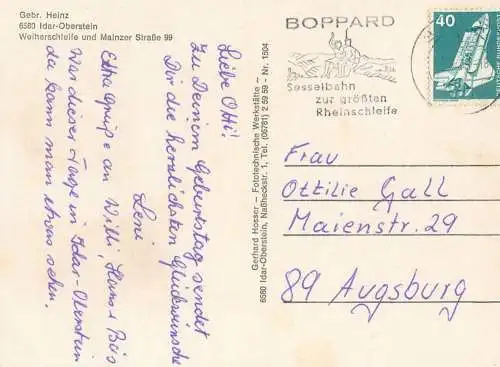 Gebr. Heinz
6580 Idar-Oberstein
Weiherschleife und Mainzer Straße 99
Liebe Otti!
Zu Deinem Geburtstag sendet
Dir die herzlichsten Glückwünsche
Leni
Extra Grüße an Willi, Hans + Bäs
War dieser Tage in Idar-Oberstein
da kann man etwas sehen.
Gerhard Hosser – Fototechnische Werkstätte –
6580 Idar-Oberstein, Naßheckstr. 1, Tel. (06781) 2 59 59 - Nr. 1504
BOPPARD
Sesselbahn
zur größten
Rheinschleife
40
Frau
Ottilie Gall
Maienstr. 29
89 Augsburg